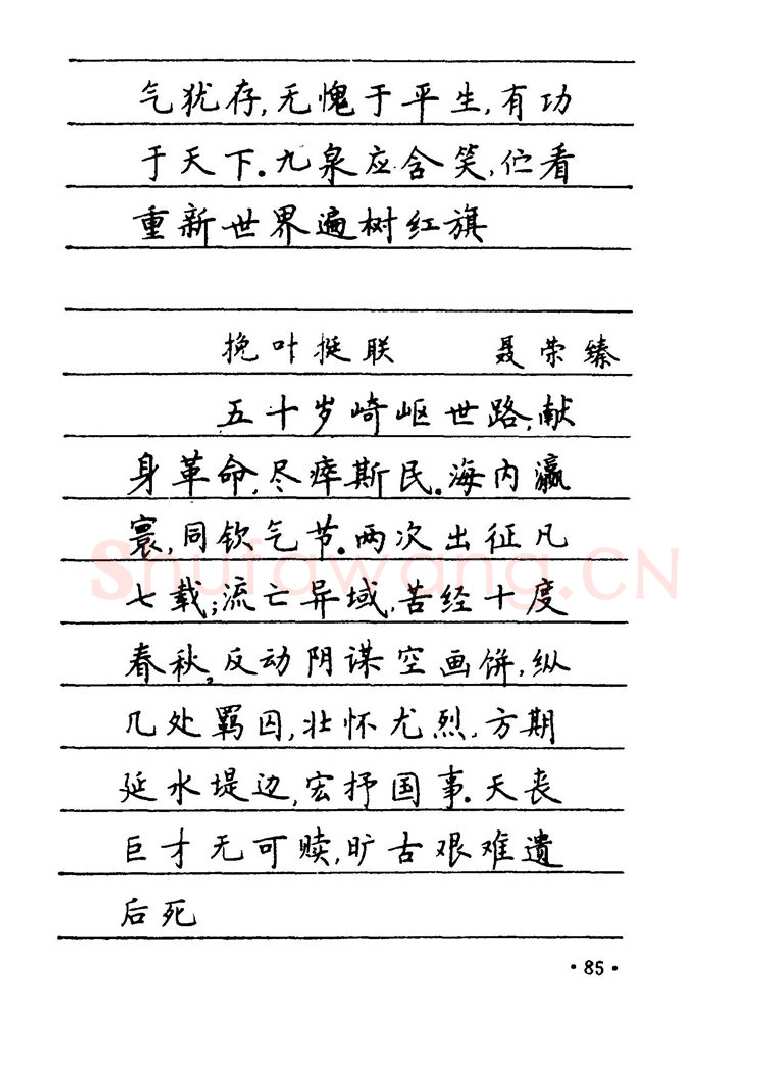 气犹存,无愧于平生,有功
于天下.九泉应含笑,伫看
重新世界遍树红旗
挽叶挺联 聂荣臻
五十岁崎岖世路,献
身革命,尽瘁斯民.海内瀛
寰,同钦气节.两次出征凡
七载;流亡异域,苦经十度
春秋,反动阴谋空画饼,纵
几处羁囚,壮怀尤烈.方期
延水堤边,宏抒国事.天丧
巨才无可赎,旷古艰难遗
后死
·85·
Shufawang.CN